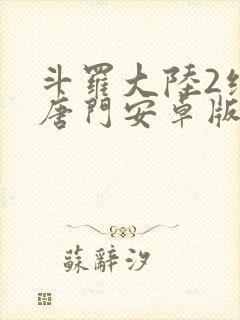 斗羅大陸2
唐門安卓版
蘇辭汐